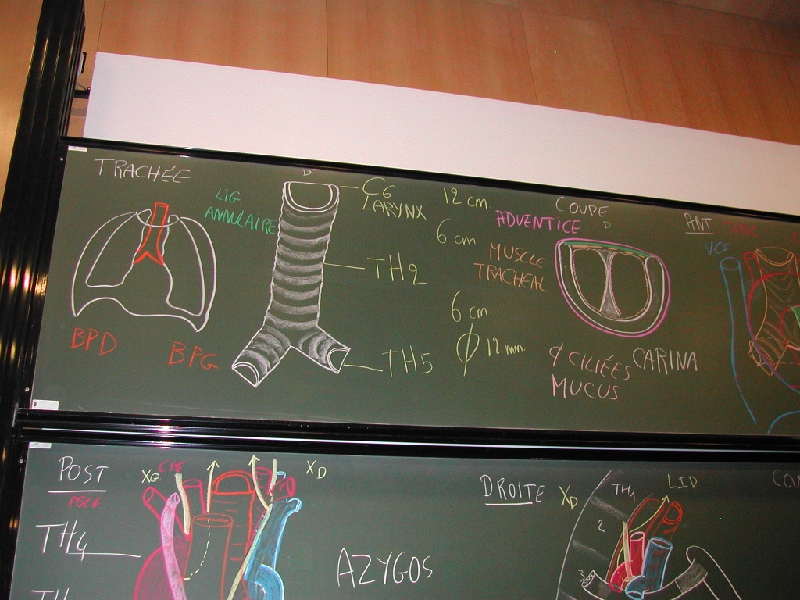 TRACHÉE
BPD
BPG
LIG
ANNULAIRE
D
C6
LARYNX
TH2
TH5
12 cm
6 cm
6 cm
ϕ 12 mm
COUPE
D
ADVENTICE
MUSCLE
TRACHEAL
CARINA
CILIÉES
MUCUS
ANT
VCS
POST
TH4
XG
XD
AZYGOS
DROITE
XD
TH1
2
3